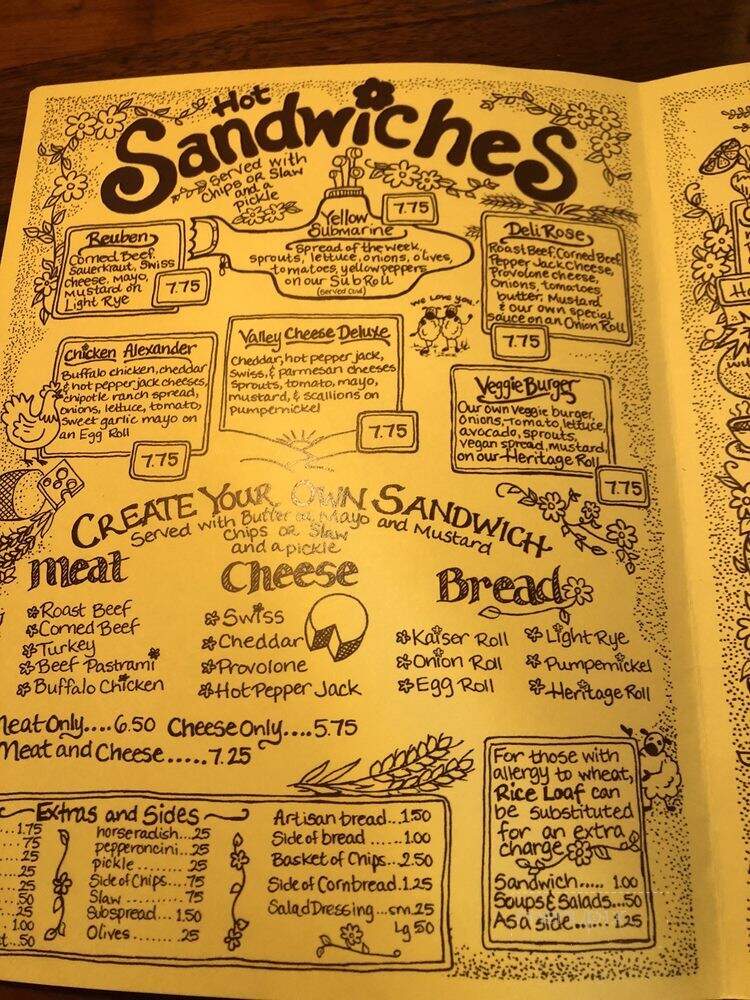 Hot
Sandwiches
served with
chips or Slaw
and a
pickle
Reuben
Corned Beef,
Sauerkraut, Swiss
cheese, Mayo,
Mustard on
Light Rye
7.75
Yellow
Submarine
7.75
Spread of the week,
sprouts, lettuce, onions, olives,
tomatoes, yellow peppers
on our Sub Roll
(served cold)
Deli Rose
Roast Beef, Corned Beef
Pepper Jack Cheese,
Provolone cheese,
Onions, tomatoes
butter, Mustard
& our own special
sauce on an Onion Roll
7.75
We Love you!
Chicken Alexander
Buffalo chicken, cheddar
& hot pepper jack cheeses,
chipotle ranch spread,
onions, lettuce, tomato,
sweet garlic mayo on
an Egg Roll
7.75
Valley Cheese Deluxe
Cheddar, hot pepper jack,
Swiss, & parmesan cheeses
Sprouts, tomato, mayo,
mustard, & scallions on
pumpernickel
7.75
Veggie Burger
Our own veggie burger,
onions, tomato, lettuce,
avocado, sprouts,
vegan spread, mustard
on our Heritage Roll
7.75
Create Your Own Sandwich
Served with Butter or Mayo and Mustard
Chips or Slaw
and a pickle
Meat
Roast Beef
Corned Beef
Turkey
Beef Pastrami
Buffalo Chicken
Cheese
Swiss
Cheddar
Provolone
Hot Pepper Jack
Bread
Kaiser Roll
Onion Roll
Egg Roll
Light Rye
Pumpernickel
Heritage Roll
Meat Only....6.50 Cheese Only....5.75
Meat and Cheese.....7.25
Extras and Sides
...1.75
75
25
25
25
50
.25
1.00
.50
horseradish...25
pepperoncini..25
pickle.....25
Side of Chips....75
Slaw........75
Subspread...1.50
Olives.......25
Artisan bread...1.50
Side of bread.....1.00
Basket of Chips...2.50
Side of Cornbread.1.25
Salad Dressing...sm.25
Lg 50
For those with
allergy to wheat,
Rice Loaf can
be substituted
for an extra
charge
Sandwich..... 1.00
Soups & Salads...50
As a side....... 1.25